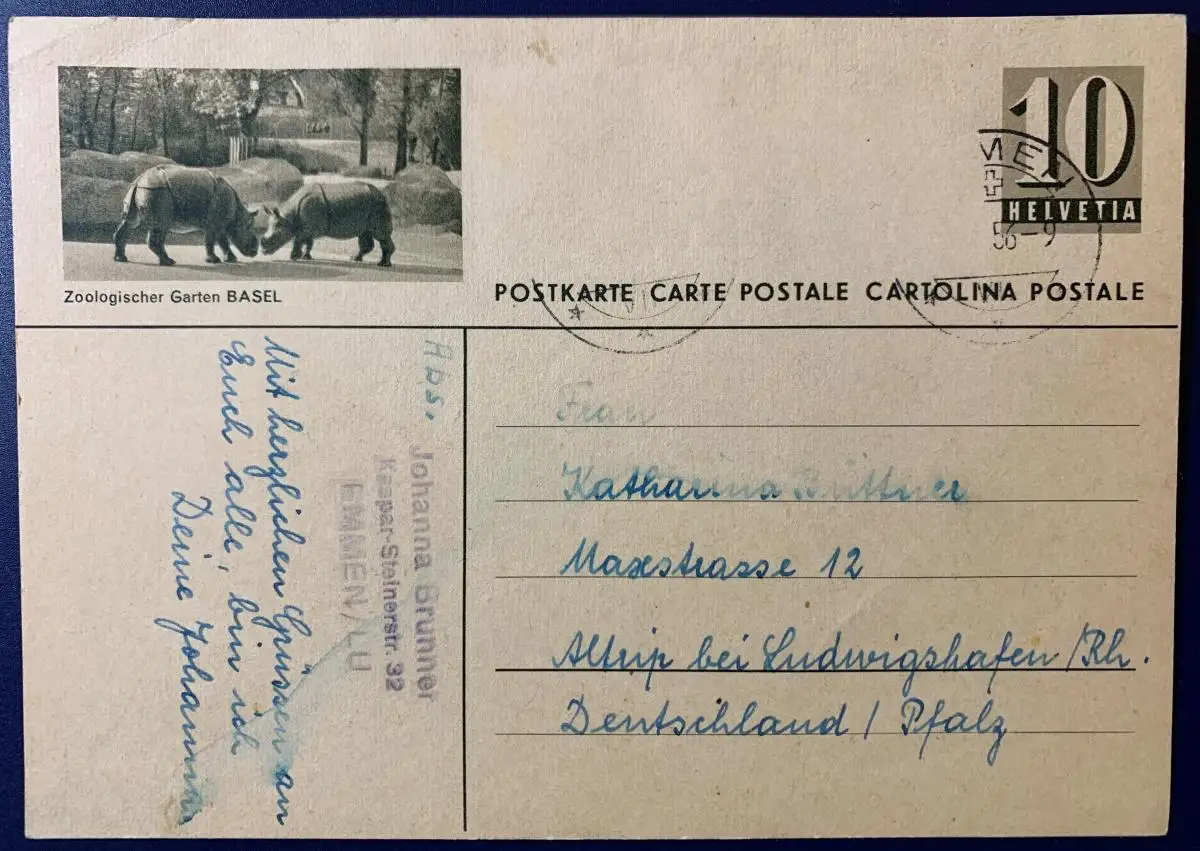 10
HELVETIA
56-9
Zoologischer Garten BASEL
POSTKARTE CARTE POSTALE CARTOLINA POSTALE
Abs.
Johanna Brunner
Kaspar-Steinerstr. 32
EMMEN/LU
Mit herzlichen Grüssen an
Euch alle, bin ich
Deine Johanna
Frau
Katharina Büttner
Maxstrasse 12
Altrip bei Ludwigshafen/Rh.
Deutschland / Pfalz